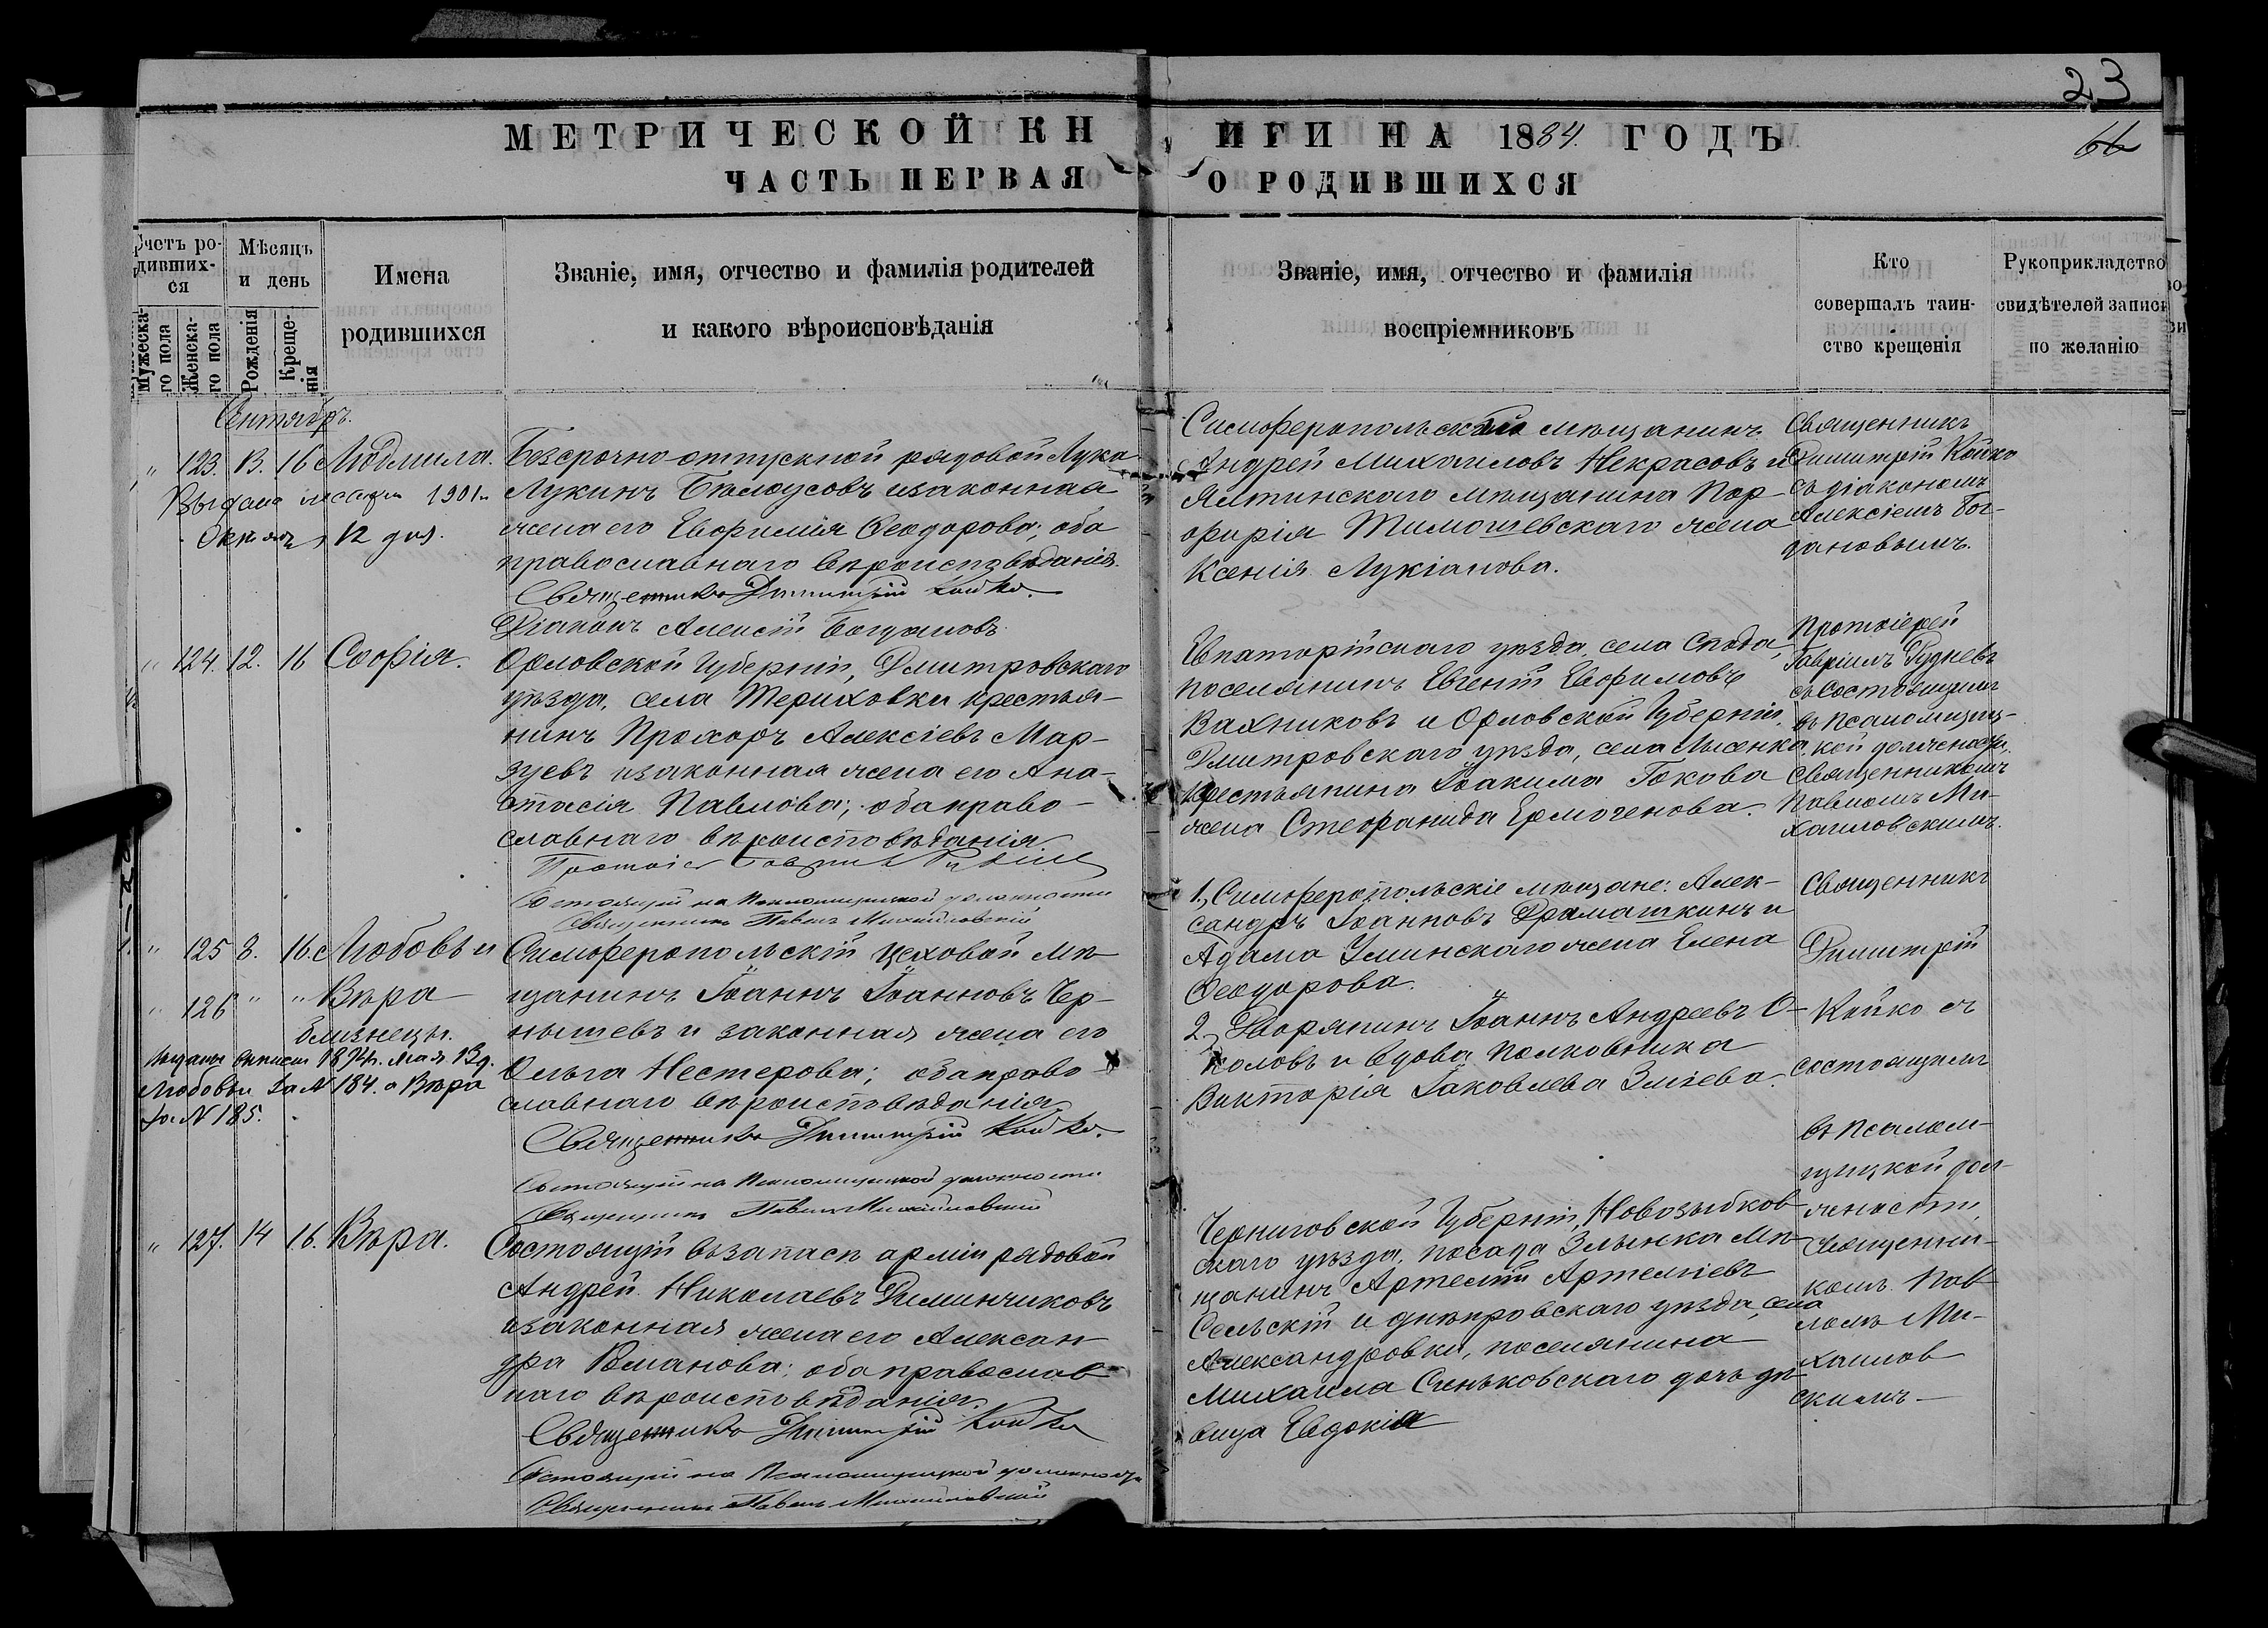 23
66
МЕТРИЧЕСКОЙ КНИГИ НА 1884. ГОДЪ
ЧАСТЬ ПЕРВАЯ О РОДИВШИХСЯ
Счетъ ро-
дивших-
ся
Мужеска-
го пола
Женска-
го пола
Мѣсяцъ
и день
Рожденія
Креще-
нія
Имена
родившихся
Званіе, имя, отчество и фамилія родителей
и какого вѣроисповѣданія
Званіе, имя, отчество и фамилія
воспріемниковъ
Кто
совершалъ таин-
ство крещенія
Рукоприкладство
свидѣтелей записи
по желанію
Сентябрь.
" 123. 13. 16 Людмила.
Выдана 1901
12
Безсрочно-отпускной рядовой Лука
Лукинъ Бѣлоусовъ и законная
жена его Евфимія Ѳеодорова; оба
православнаго вѣроисповѣданія.
Священникъ Димитрій Койко.
Діаконъ Алексій Богдановъ
Симферопольскій мѣщанинъ
Андрей Михаиловъ Некрасовъ и
Ялтинскаго мѣщанина Пор-
фирія Тимошевскаго жена
Ксенія Лукіанова.
Священникъ
Димитрій Койко
съ діакономъ
Алексіемъ Бог-
дановымъ.
" 124. 12. 16 Софія.
Орловской Губерніи, Дмитровскаго
уѣзда, села Териховки крестья-
нинъ Прохоръ Алексіевъ Мар-
зуевъ и законная жена его Ана-
стасія Павлова; оба право-
славнаго вѣроисповѣданія.
Состоящій на Псаломщицкой должности
Священникъ Павелъ Михайловскій
Евпаторійскаго уѣзда, села Спода,
поселянинъ Евгеній Евфимовъ
Вахниковъ и Орловской Губерніи,
Дмитровскаго уѣзда, села Лысенка
крестьянина Іоакима Гокова
жена Стефанида Ермогенова.
Протоіерей
Гавріилъ Рудневъ
съ состоящимъ
въ псаломщиц-
кой должности
Священникомъ
Павломъ Ми-
хаиловскимъ.
1. " 125 8. 16. Любовь и
" 126 " " Вѣра
близнецы.
Выданы выписи 1894г. Мая 13д.
Любовьи за № 184. а Вѣра
за № 185.
Симферопольскій цеховой мѣ-
щанинъ Іоаннъ Іоанновъ Чер-
нышевъ и законная жена его
Ольга Нестерова; оба право-
славнаго вѣроисповѣданія.
Священникъ Димитрій Койко.
Состоящій на Псаломщицкой должности
Священникъ Павелъ Михайловскій
1, Симферопольскіе мѣщане: Алек-
сандръ Іоанновъ Драмашкинъ и
Адама Уминскаго жена Елена
Ѳеодорова.
2, Дворянинъ Іоаннъ Андреевъ О-
коловъ и вдова полковника
Викторія Іаковлева Зміева.
Священникъ
Димитрій
Койко съ
состоящимъ
въ псалом-
щицкой дол-
жности
Священни-
комъ Пав-
ломъ Ми-
хаилов
скимъ
" 127. 14 16. Вѣра.
Состоящій въ запасѣ арміи рядовой
Андрей Николаевъ Диминчиковъ
и законная жена его Алексан-
дра Романова; оба православ-
наго вѣроисповѣданія.
Священникъ Димитрій Койко
Состоящій на Псаломщицкой должности
Священникъ Павелъ Михайловскій
Черниговской Губерніи, Новозыбков-
скаго уѣзда, посада Злынка мѣ-
щанинъ Артемій Артеміевъ
Сельскій и днѣпровскаго уѣзда, села
Александровки, поселянина
Михаила Сеньковскаго дочь дѣ-
вица Евдокія